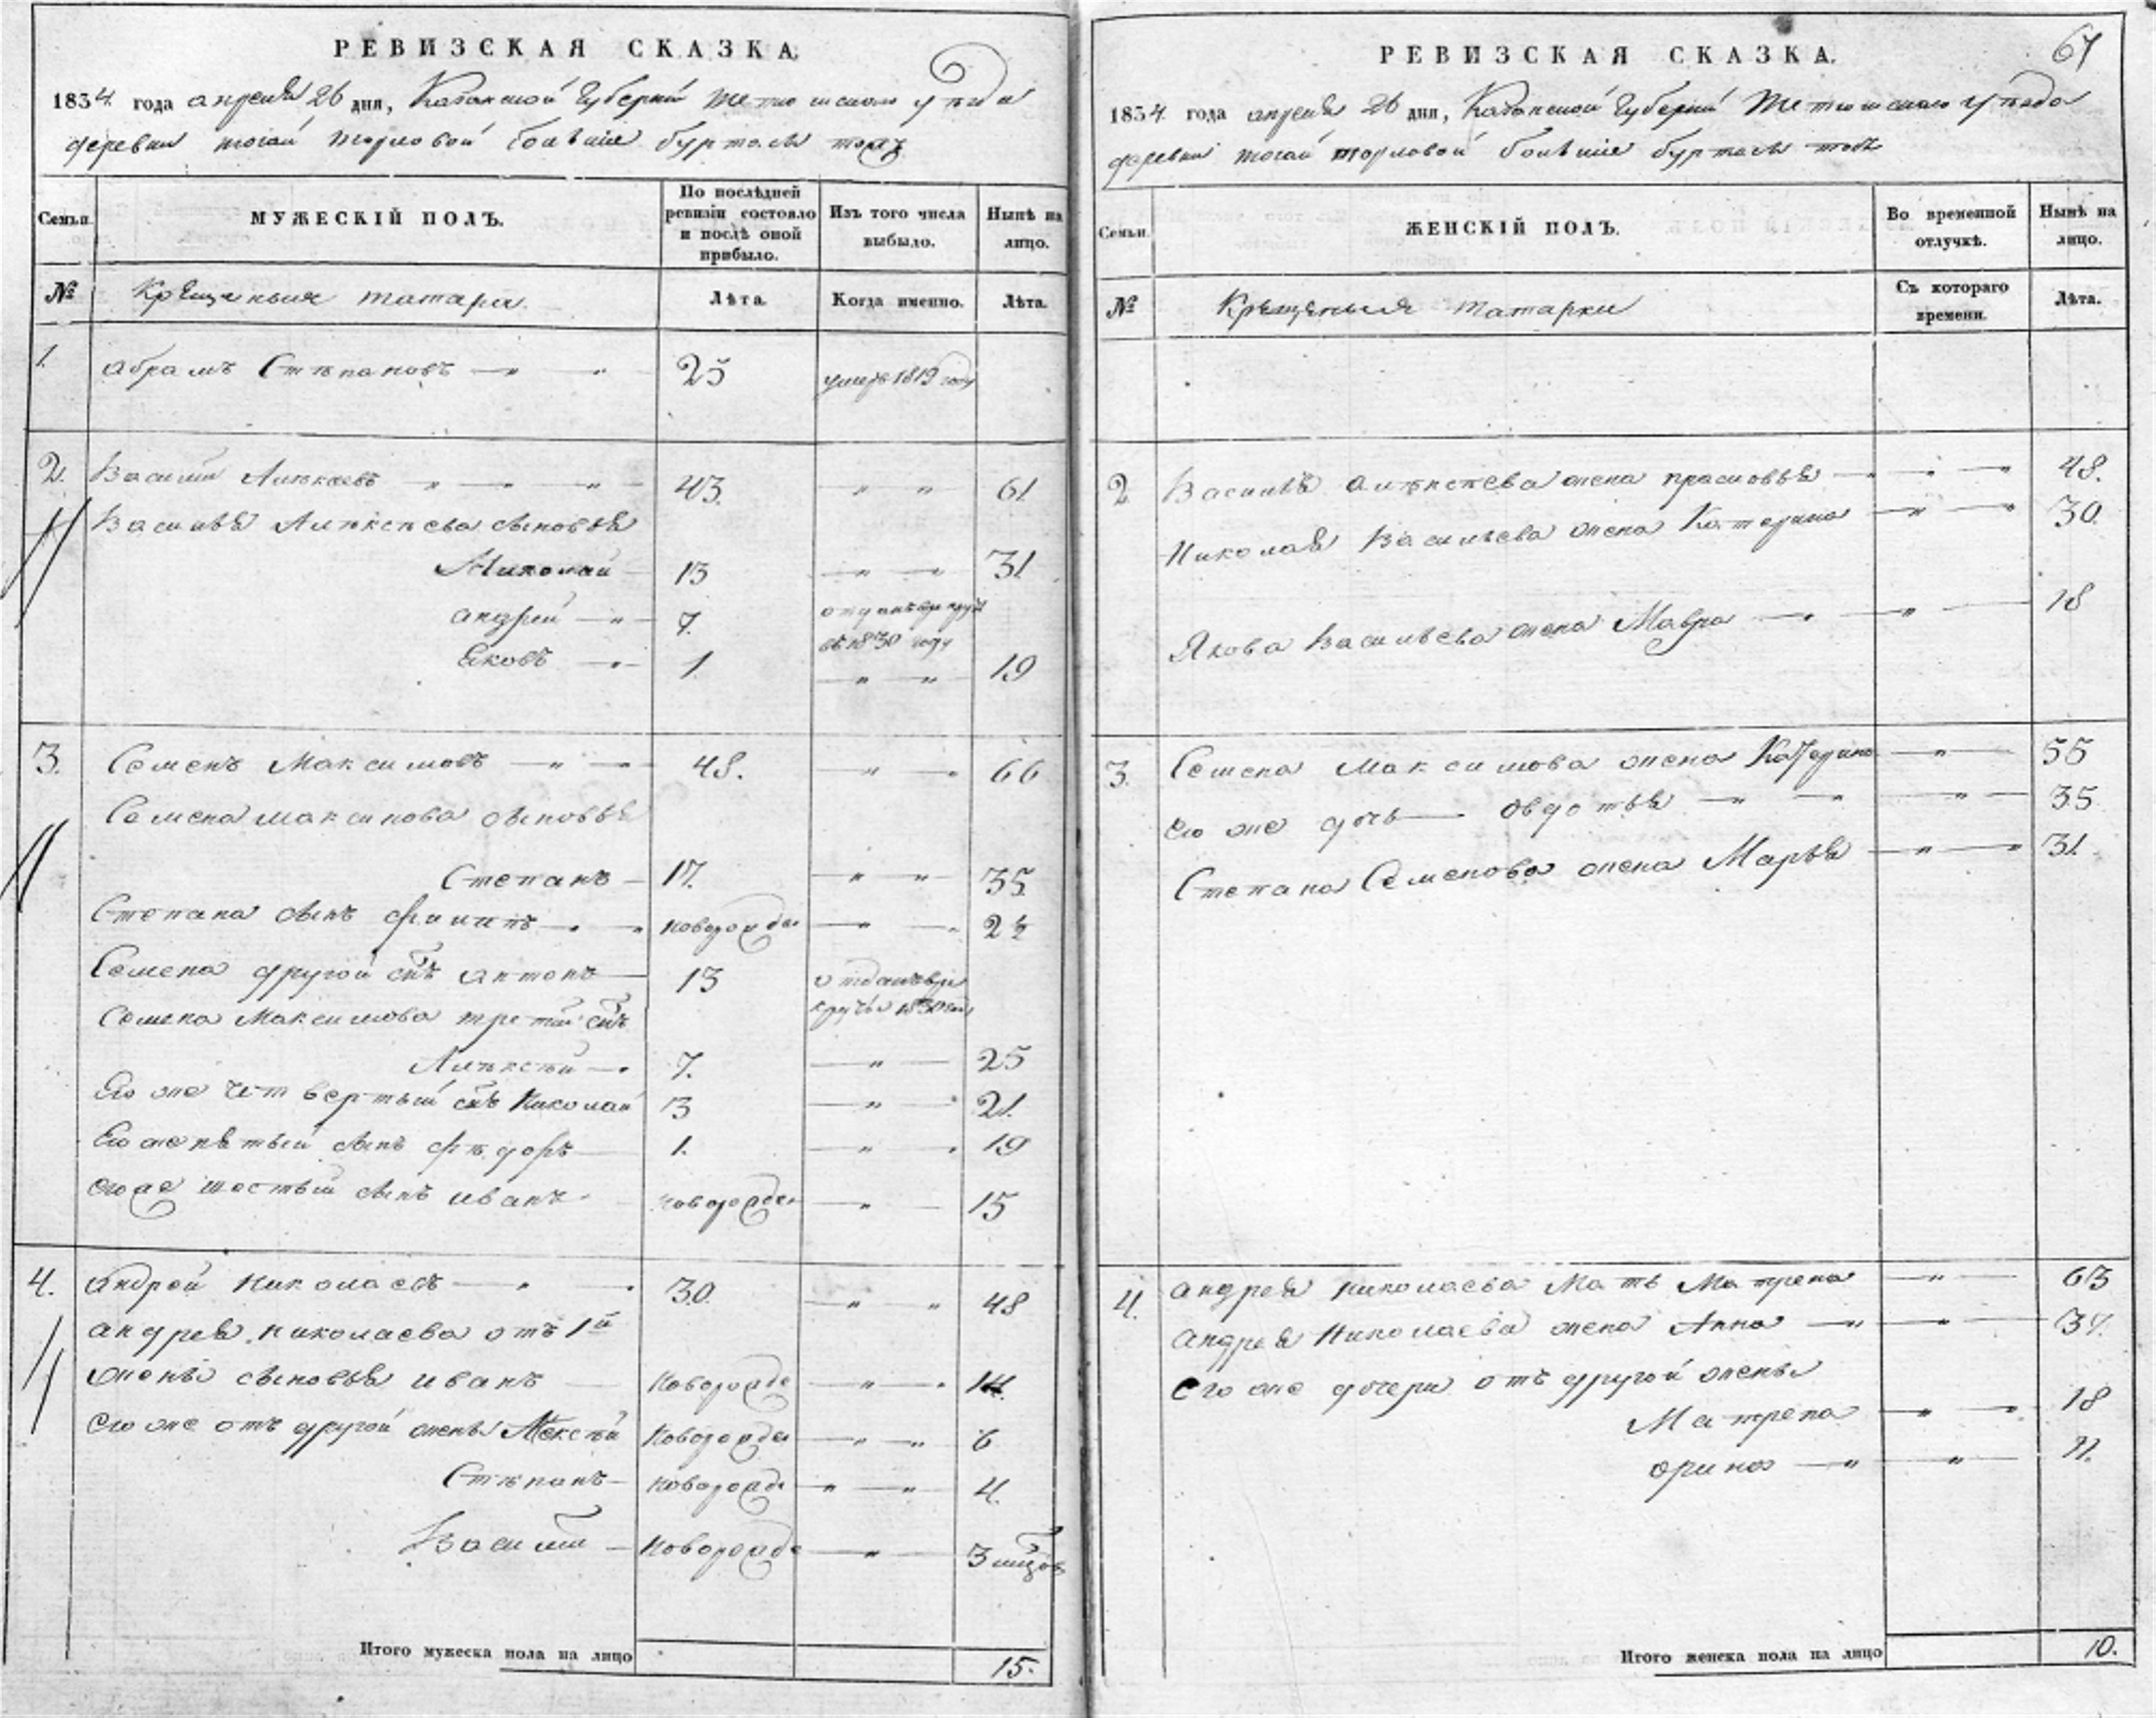 РЕВИЗСКАЯ СКАЗКА.
1834 года апреля 26 дня, Казанской Губернии уѣзда
деревни большие буртасы тожъ
Семьи.
МУЖЕСКІЙ ПОЛЪ.
По послѣдней ревизіи состояло и послѣ оной прибыло.
Изъ того числа выбыло.
Нынѣ на лицо.
№
Крещеныя татара.
Лѣта.
Когда именно.
Лѣта.
1. Абрамъ Степановъ 25 умеръ 1819 году
2. Василий 43. 61
Василья Алексеева сыновья
Николай 13 31
андрей 7. въ 1830 году
Яковъ 1. 19
3. Семенъ Максимовъ 48. 66
Семена максимова сыновья
Степанъ 17. 35
Степана сынъ филипъ новорожде 2½
Семена другой сынъ антонъ 13
Семена Максимова третий сынъ
Алексей 7. 25
Его же четвертый сынъ Николай 3 21.
Его же пятый сынъ федоръ 1. 19
его же шестый сынъ иванъ новорожде 15
4. андрей николаевъ 30. 48
андрея николаева отъ 1й
жены сыновья иванъ Новорожде 14.
его же отъ другой жены Алексей Новорожде 6
Степанъ новорожде 4.
Василий Новорожде 3
Итого мужеска пола на лицо 15.
67
РЕВИЗСКАЯ СКАЗКА.
1834 года апреля 26 дня, Казанской Губернии уѣзда
деревни большие буртасы тожъ
Семьи.
ЖЕНСКІЙ ПОЛЪ.
Во временной отлучкѣ.
Нынѣ на лицо.
№
Крещеныя татарки
Съ котораго времени.
Лѣта.
2 Василья алексеева жена прасковья 48.
Николая Васильева жена Катерина 30.
Якова Васильева жена Мавра 18
3. Семена максимова жена Катерина 55
его же дочь овдотья 35
Степана Семенова жена Марья 31.
4. андрея николаева Мать Матрена 63
андрея Николаева жена Анна 37.
его же дочери отъ другой жены
Матрена 18
орина 11.
Итого женска пола на лицо 10.